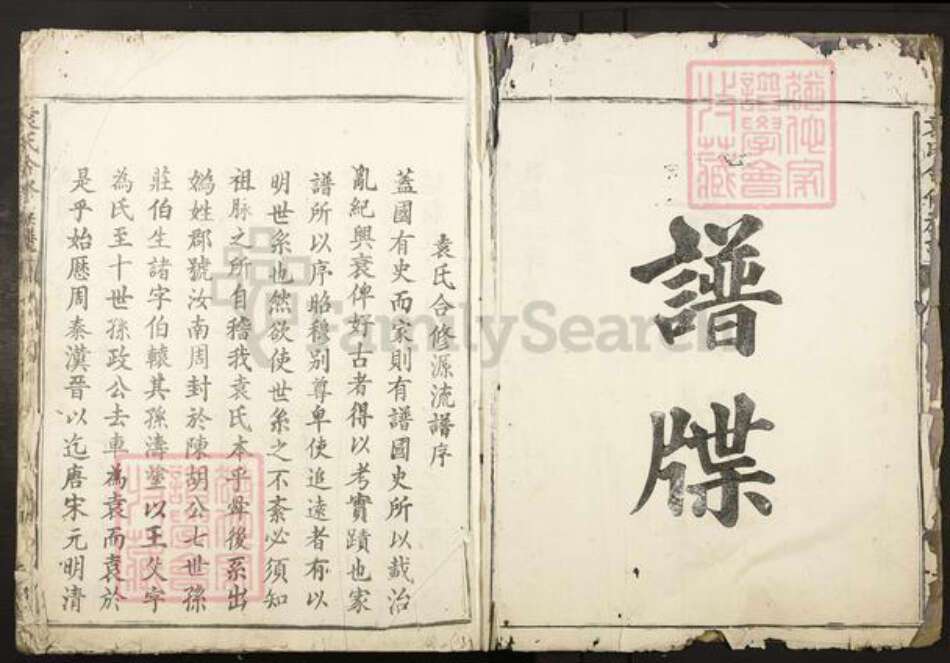 譜
牒
袁氏合修源流譜序
蓋國有史而家則有譜國史所以載治
亂紀興衰俾好古者得以考實蹟也家
譜所以序昭穆别尊卑使追遠者有以
明世系也然欲使世系之不紊必須知
祖脉之所自稽我袁氏本乎舜後系出
媯姓郡號汝南周封於陳胡公七世孫
莊伯生諸字伯轅其孫濤塗以王父字
為氏至十世孫政公去車為袁而袁於
是乎始歷周秦漢晉以迄唐宋元明清
FamilySearch
譜學會
收藏